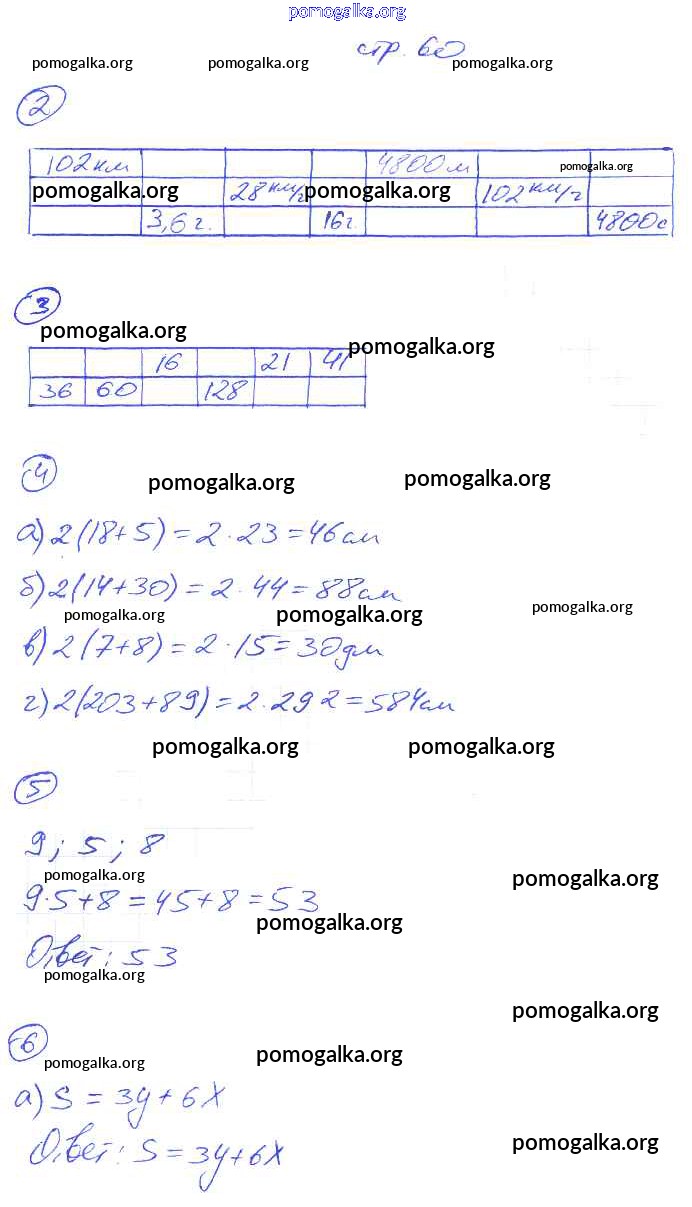 pomogalka.org
стр. 60
pomogalka.org pomogalka.org pomogalka.org
2
102км 4800м pomogalka.org
pomogalka.org 28км/г pomogalka.org 102км/г
3,6г. 16г. 4800с
3
pomogalka.org
pomogalka.org
16 21 41
36 60 128
4
pomogalka.org pomogalka.org
а) 2(18+5)=2·23=46см
б) 2(14+30)=2·44=88см
pomogalka.org pomogalka.org pomogalka.org
в) 2(7+8)=2·15=30дм
г) 2(203+89)=2·292=584см
pomogalka.org pomogalka.org
5
9; 5; 8
pomogalka.org pomogalka.org
9·5+8=45+8=53
pomogalka.org
Ответ: 53
pomogalka.org
pomogalka.org
6
pomogalka.org pomogalka.org
а) S = 3y + 6x
Ответ: S = 3y+6x
pomogalka.org